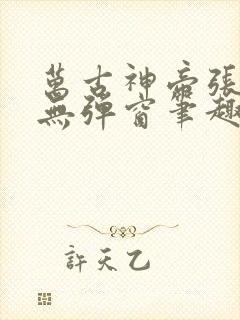 萬古神帝張
無彈窗筆趣
許天乙